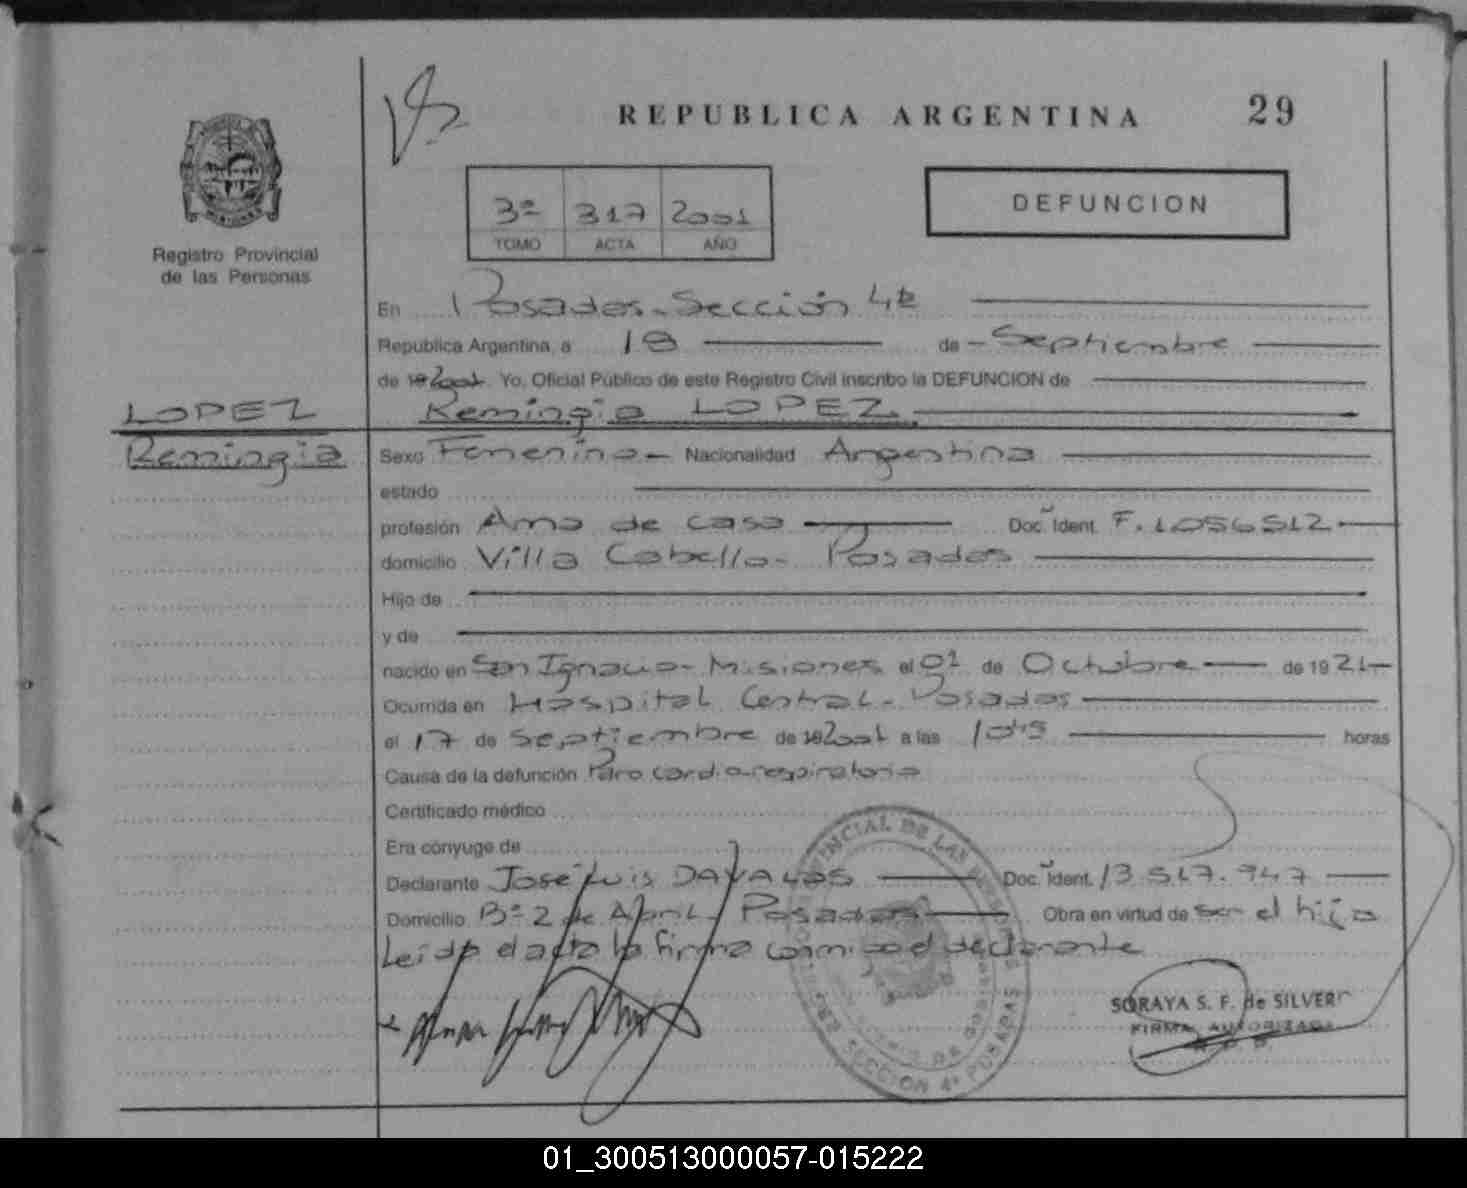 REPUBLICA ARGENTINA
29
3º 317 2001
TOMO ACTA AÑO
DEFUNCION
Registro Provincial
de las Personas
En Posadas - Sección 4ta
Republica Argentina, a 18 de Septiembre
de 19 2001 Yo, Oficial Público de este Registro Civil inscribo la DEFUNCION de
LOPEZ
Remingia
Remingia LOPEZ
Sexo Femenino - Nacionalidad Argentina
estado
profesión Ama de casa Doc. Ident. F. 1056512
domicilio Villa Cabello - Posadas
Hijo de
y de
nacido en San Ignacio - Misiones el 01 de Octubre de 19 21
Ocurrida en Hospital Central - Posadas
el 17 de Septiembre de 19 2001 a las 1045 horas
Causa de la defunción Paro cardiorespiratorio
Certificado médico
Era cónyuge de
Declarante José Luis DAVALOS Doc. Ident. 13.517.947
Domicilio Bº 2 de Abril - Posadas Obra en virtud de ser el hijo
Leída el acta la firma conmigo el declarante
SORAYA S. F. de SILVERI
FIRMA AUTORIZADA
SECCION 4ª POSADAS
01_300513000057-015222